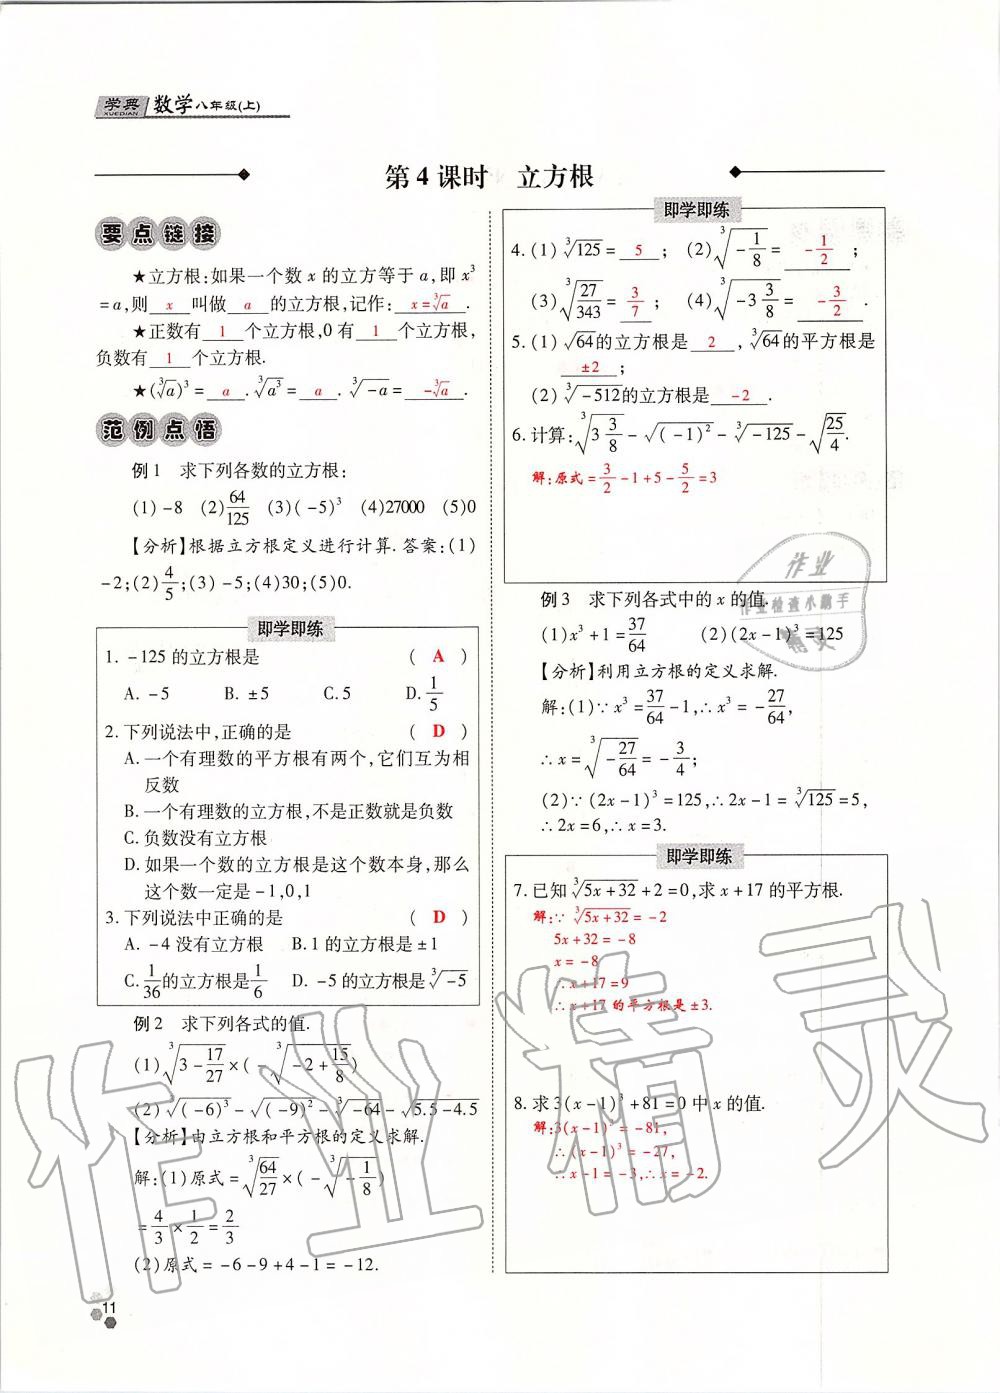 学典 数学八年级(上)
XUEDIAN
第4课时 立方根
要点链接
★立方根:如果一个数x的立方等于a,即x³
=a,则 x 叫做 a 的立方根,记作: x=∛a .
★正数有 1 个立方根,0有 1 个立方根,
负数有 1 个立方根.
★(∛a)³= a .∛a³= a .∛-a= -∛a .
范例点悟
例1 求下列各数的立方根:
(1)-8 (2)64/125 (3)(-5)³ (4)27000 (5)0
【分析】根据立方根定义进行计算.答案:(1)
-2;(2)4/5;(3)-5;(4)30;(5)0.
即学即练
1. -125的立方根是 ( A )
A. -5 B. ±5 C.5 D.1/5
2.下列说法中,正确的是 ( D )
A.一个有理数的平方根有两个,它们互为相
反数
B.一个有理数的立方根,不是正数就是负数
C.负数没有立方根
D.如果一个数的立方根是这个数本身,那么
这个数一定是-1,0,1
3.下列说法中正确的是 ( D )
A. -4没有立方根 B.1的立方根是±1
C.1/36的立方根是1/6 D. -5的立方根是∛-5
例2 求下列各式的值.
(1)∛(3-17/27)×(-∛(-2+15/8))
(2)√(-6)³-√(-9)²-∛-64-√5.5-4.5
【分析】由立方根和平方根的定义求解.
解:(1)原式=∛(64/27)×(-∛(-1/8))
=4/3×1/2=2/3
(2)原式=-6-9+4-1=-12.
11
即学即练
4.(1)∛125= 5 ; (2)∛(-1/8)= -1/2 ;
(3)∛(27/343)= 3/7 ; (4)∛(-3 3/8)= -3/2 .
5.(1)√64的立方根是 2 ,∛64的平方根是
±2 ;
(2)∛-512的立方根是 -2 .
6.计算:∛(3 3/8)-√(-1)²-∛-125-√(25/4).
解:原式=3/2-1+5-5/2=3
例3 求下列各式中的x的值.
(1)x³+1=37/64 (2)(2x-1)³=125
【分析】利用立方根的定义求解.
解:(1)∵x³=37/64-1,∴x³=-27/64,
∴x=∛(-27/64)=-3/4;
(2)∵(2x-1)³=125,∴2x-1=∛125=5,
∴2x=6,∴x=3.
即学即练
7.已知∛(5x+32)+2=0,求x+17的平方根.
解:∵∛(5x+32)=-2
5x+32=-8
x=-8
∴x+17=9
∴x+17的平方根是±3.
8.求3(x-1)³+81=0中x的值.
解:3(x-1)³=-81,
∴(x-1)³=-27,
∴x-1=-3,∴x=-2.
作业
作业检查小助手
精灵
作业精灵